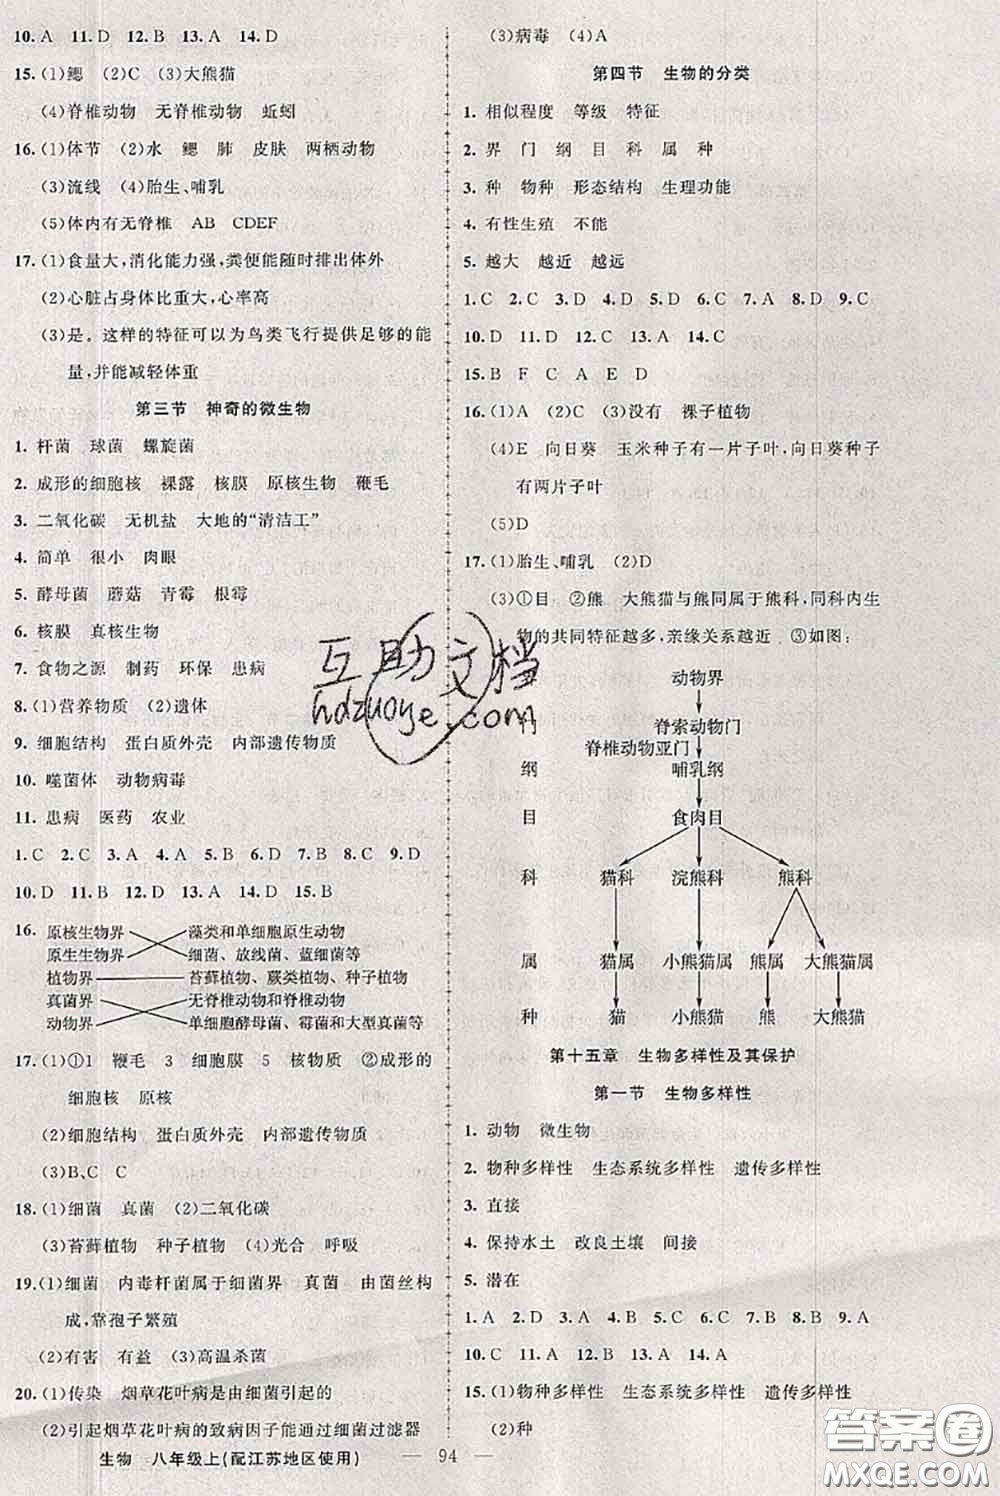 10. A 11. D 12. B 13. A 14. D
15. (1)鳃 (2)C (3)大熊猫
(4)脊椎动物 无脊椎动物 蚯蚓
16. (1)体节 (2)水 鳃 肺 皮肤 两栖动物
(3)流线 (4)胎生、哺乳
(5)体内有无脊椎 AB CDEF
17. (1)食量大,消化能力强,粪便能随时排出体外
(2)心脏占身体比重大,心率高
(3)是。这样的特征可以为鸟类飞行提供足够的能
量,并能减轻体重
第三节 神奇的微生物
1. 杆菌 球菌 螺旋菌
2. 成形的细胞核 裸露 核膜 原核生物 鞭毛
3. 二氧化碳 无机盐 大地的“清洁工”
4. 简单 很小 肉眼
5. 酵母菌 蘑菇 青霉 根霉
6. 核膜 真核生物
7. 食物之源 制药 环保 患病
8. (1)营养物质 (2)遗体
9. 细胞结构 蛋白质外壳 内部遗传物质
10. 噬菌体 动物病毒
11. 患病 医药 农业
1. C 2. C 3. A 4. A 5. B 6. D 7. B 8. C 9. D
10. D 11. B 12. D 13. A 14. D 15. B
16. 原核生物界 藻类和单细胞原生动物
原生生物界 细菌、放线菌、蓝细菌等
植物界 苔藓植物、蕨类植物、种子植物
真菌界 无脊椎动物和脊椎动物
动物界 单细胞酵母菌、霉菌和大型真菌等
17. (1)①1 鞭毛 3 细胞膜 5 核物质 ②成形的
细胞核 原核
(2)细胞结构 蛋白质外壳 内部遗传物质
(3)B、C C
18. (1)细菌 真菌 (2)二氧化碳
(3)苔藓植物 种子植物 (4)光合 呼吸
19. (1)细菌 内毒杆菌属于细菌界 真菌 由菌丝构
成,靠孢子繁殖
(2)有害 有益 (3)高温杀菌
20. (1)传染 烟草花叶病是由细菌引起的
(2)引起烟草花叶病的致病因子能通过细菌过滤器
(3)病毒 (4)A
第四节 生物的分类
1. 相似程度 等级 特征
2. 界 门 纲 目 科 属 种
3. 种 物种 形态结构 生理功能
4. 有性生殖 不能
5. 越大 越近 越远
1. C 2. C 3. D 4. D 5. D 6. C 7. A 8. D 9. C
10. D 11. D 12. D 13. C 14. D
15. B F C A E D
16. (1)A (2)C (3)没有 裸子植物
(4)E 向日葵 玉米种子有一片子叶,向日葵种子
有两片子叶
(5)D
17. (1)胎生、哺乳 (2)D
(3)①目 ②熊 大熊猫与熊同属于熊科,同科内生
物的共同特征越多,亲缘关系越近 ③如图:
动物界
门 脊索动物门
脊椎动物亚门
纲 哺乳纲
目 食肉目
科 猫科 浣熊科 熊科
属 猫属 小熊猫属 熊属 大熊猫属
种 猫 小熊猫 熊 大熊猫
第十五章 生物多样性及其保护
第一节 生物多样性
1. 动物 微生物
2. 物种多样性 生态系统多样性 遗传多样性
3. 直接
4. 保持水土 改良土壤 间接
5. 潜在
1. A 2. D 3. A 4. D 5. B 6. D 7. A 8. B 9. A
10. C 11. A 12. A 13. A 14. A
15. (1)物种多样性 生态系统多样性 遗传多样性
(2)种
互助文档
hdzuoye.com
生物 八年级上(配江苏地区使用) — 94 —
答案圈
MXQE.COM